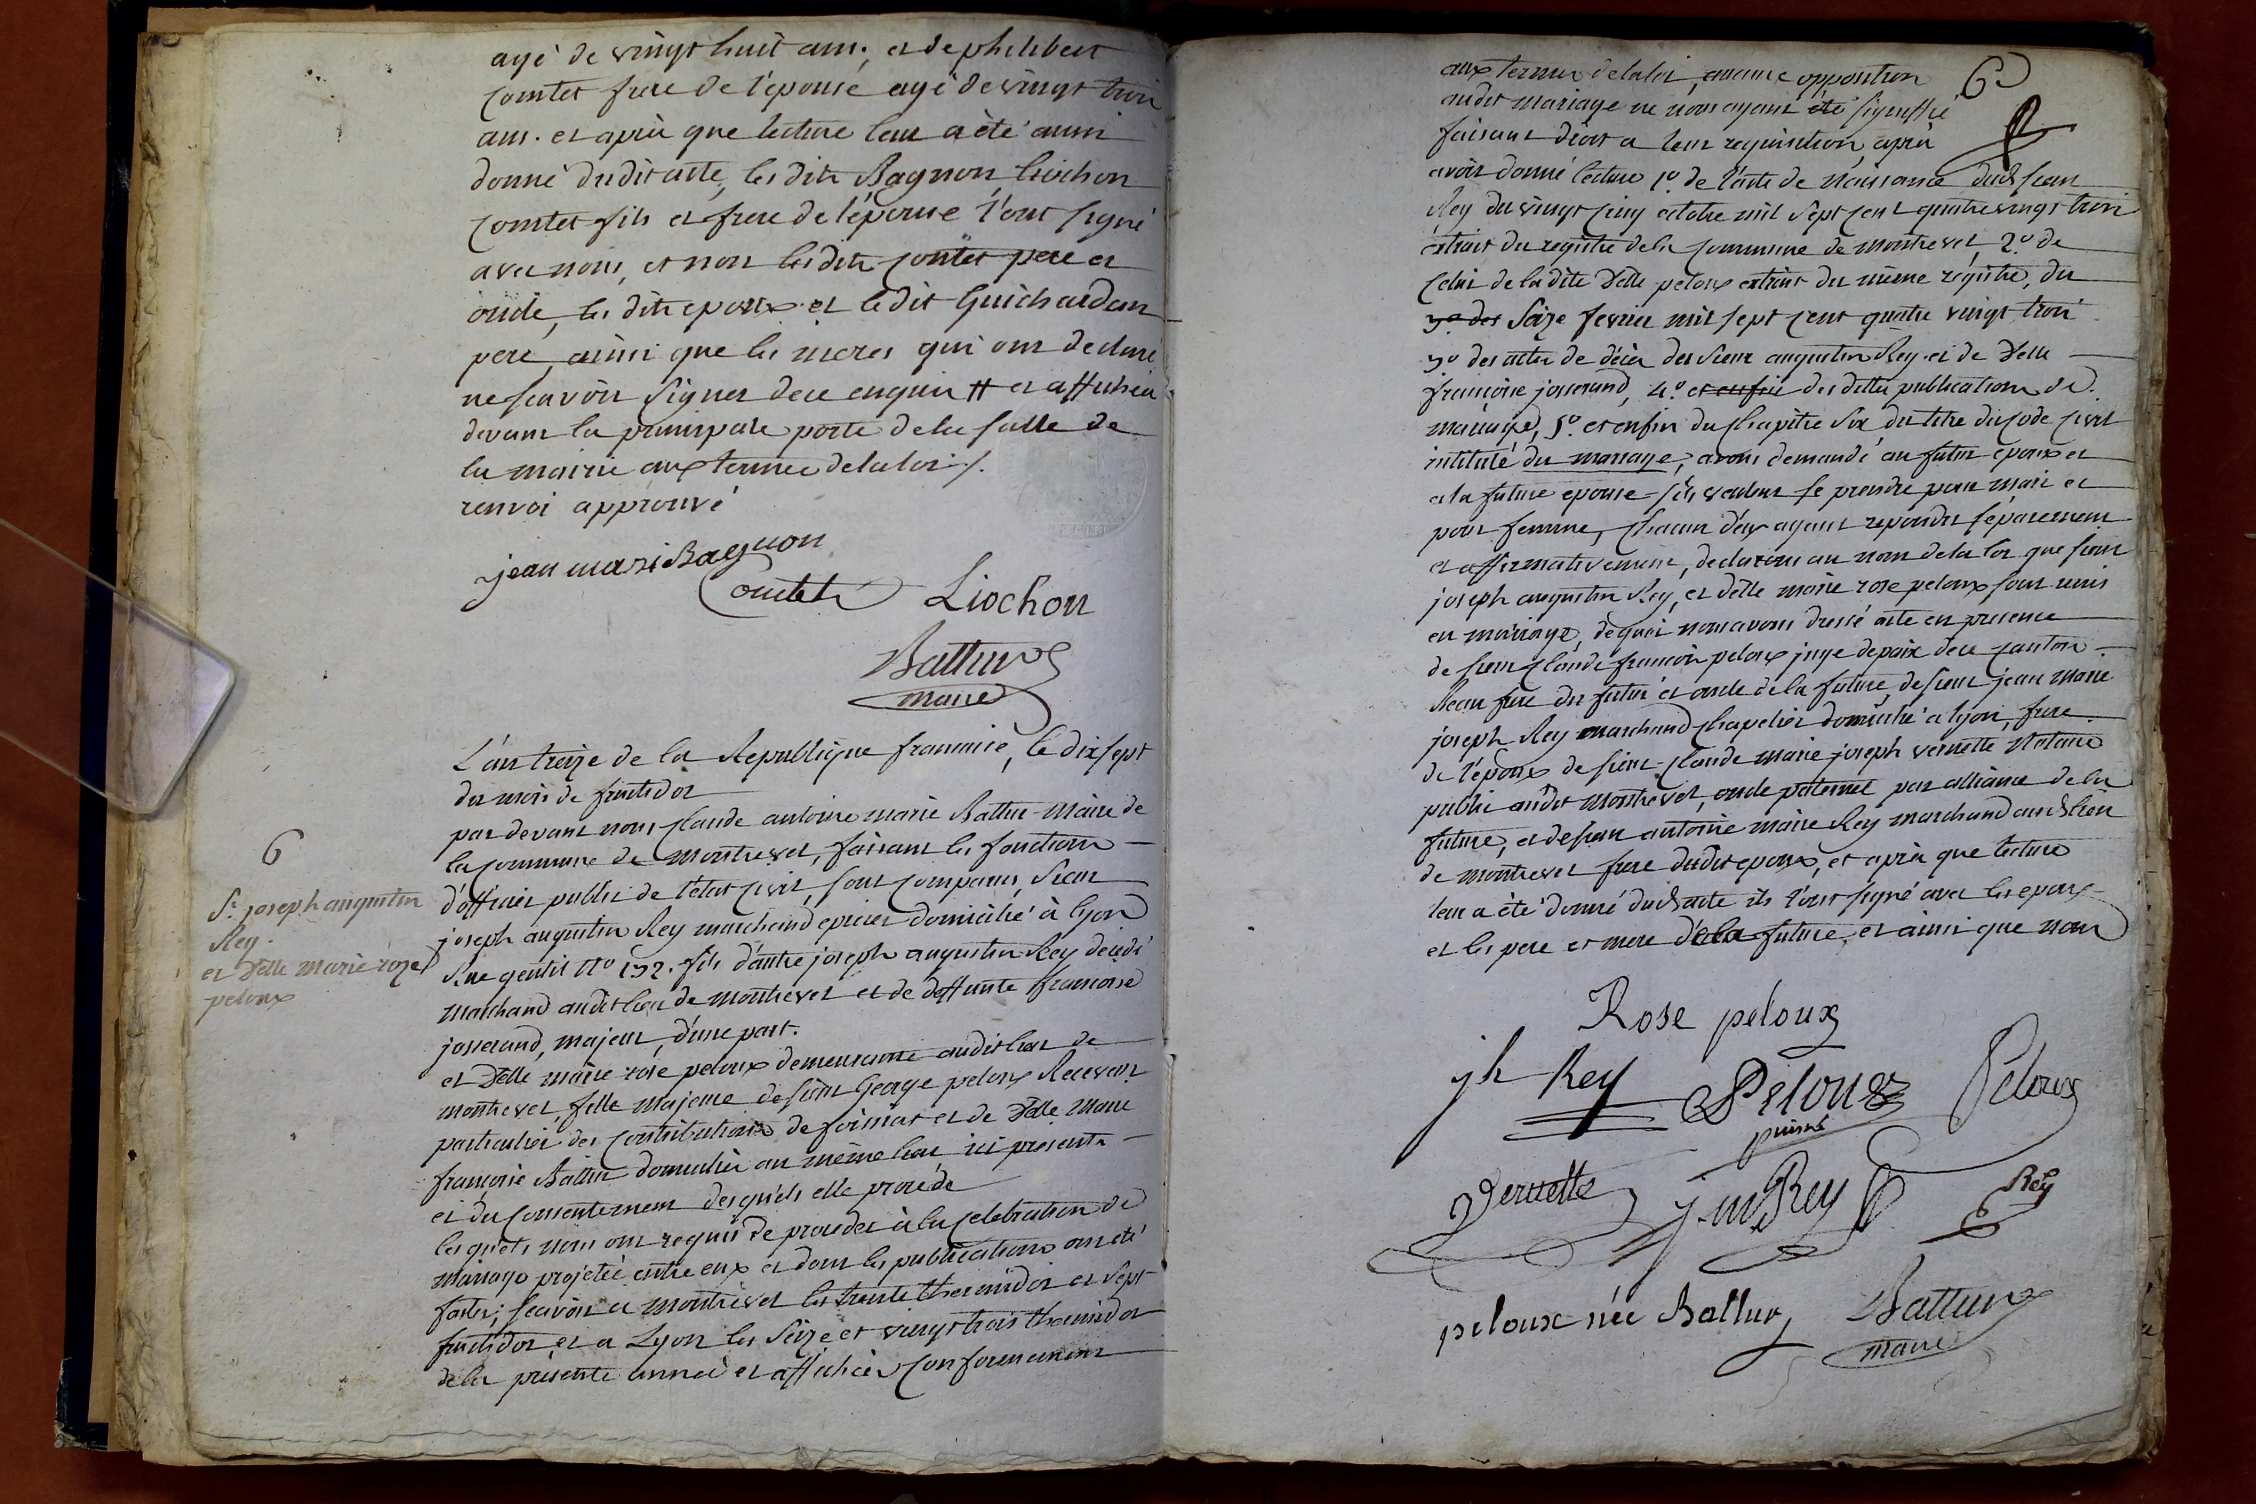 agé de vingt huit ans, et de philibert
comtet frere de l'épouse agé de vingt trois
ans. et après que lecture leur a été aussi
donné dudit acte, les dits Bagnon Liochon
comtet fils et frere de l'épouse l'ont signé
avec nous, et non lesdits comtet pere et
oncle, les dits epoux et ledit Guichardan
pere, ainsi que les meres qui ont declaré
ne scavoir signer de ce enquis # et affichés
devant la principale porte de la salle de
la mairie aux termes de la loi ./.
renvoi approuvé
jean mari Bagnon
Comtet Liochon
Battur
maire
L'an treize de la Republique francaise, le dix sept
du mois de fructidor
par devant nous Claude antoine marie Battur Maire de
la commune de Montrevel, faisant les fonctions
d'officier public de l'état civil, sont comparus, Sieur
joseph augustin Rey marchand epicier domicilié à lyon
Rue gentil N° 132. fils d'autre joseph augustin Rey décédé
marchand audit lieu de montrevel et de deffunte francoise
josserand, majeur, d'une part.
et Delle marie rose peloux demeurante audit lieu de
montrevel, fille majeure de sieur George peloux Receveur
particulier des contributions de foissiat et de Delle Marie
françoise Battur domiciliés au même lieu ici presents
et du consentement desquels elle procéde
lesquels nous ont requis de proceder à la celebration du
mariage projetté entre eux et dont les publications ont été
faites; scavoir a montrevel les trente thermidor et sept
fructidor et a Lyon les seize et vingt trois thermidor
de la présente année et affichées conformement
6
Sr. joseph augustin
Rey.
et Delle marie roze
peloux
6
aux termes de la loi, aucune opposition
audit mariage ne nous ayant été signiffié
faisant droit a leur requisition, après
avoir donné lecture 1°. de l'acte de naissance dudt sieur
Rey du vingt cinq octobre mil sept cent quatre vingt trois
extrait du registre de la commune de montrevel, 2°. de
celui de la dite Delle peloux extrait du même registre, du
3°. des seize fevrier mil sept cent quatre vingt trois
3°. des actes de décès des sieur augustin Rey et de Delle
françoise josserand, 4°. et enfin des dittes publications de
mariage, 5°. et enfin du chapitre six du titre du code civil
intitulé du mariage, avons demandé au futur epoux et
a la future epouse s'ils veulent se prendre pour mari et
pour femme, chacun d'eux ayant repondu séparement
et affirmativement, declarons au nom de la loi que sieur
joseph augustin Rey, et delle marie rose peloux sont unis
en mariage, de quoi nous avons dressé acte en presence
de sieur Claude francois peloux juge de paix de ce canton
Beau frere du futur et oncle de la future, de sieur jean marie
joseph Rey marchand chapelier domicilié a lyon, frere
de l'époux de sieur Claude marie joseph vernette Notaire
public audit Montrevel, oncle paternel par alliance de la
future, et de sieur antoine marie Rey marchand audt lieu
de montrevel frere dudit epoux, et après que lecture
leur a été donné dudt acte ils l'ont signé avec les epoux
et les pere et mere de la future, et ainsi que nous
Rose peloux
jh Rey Peloux Peloux
puiné
Vernette j. m. Rey Rey
peloux née Battur Battur
maire